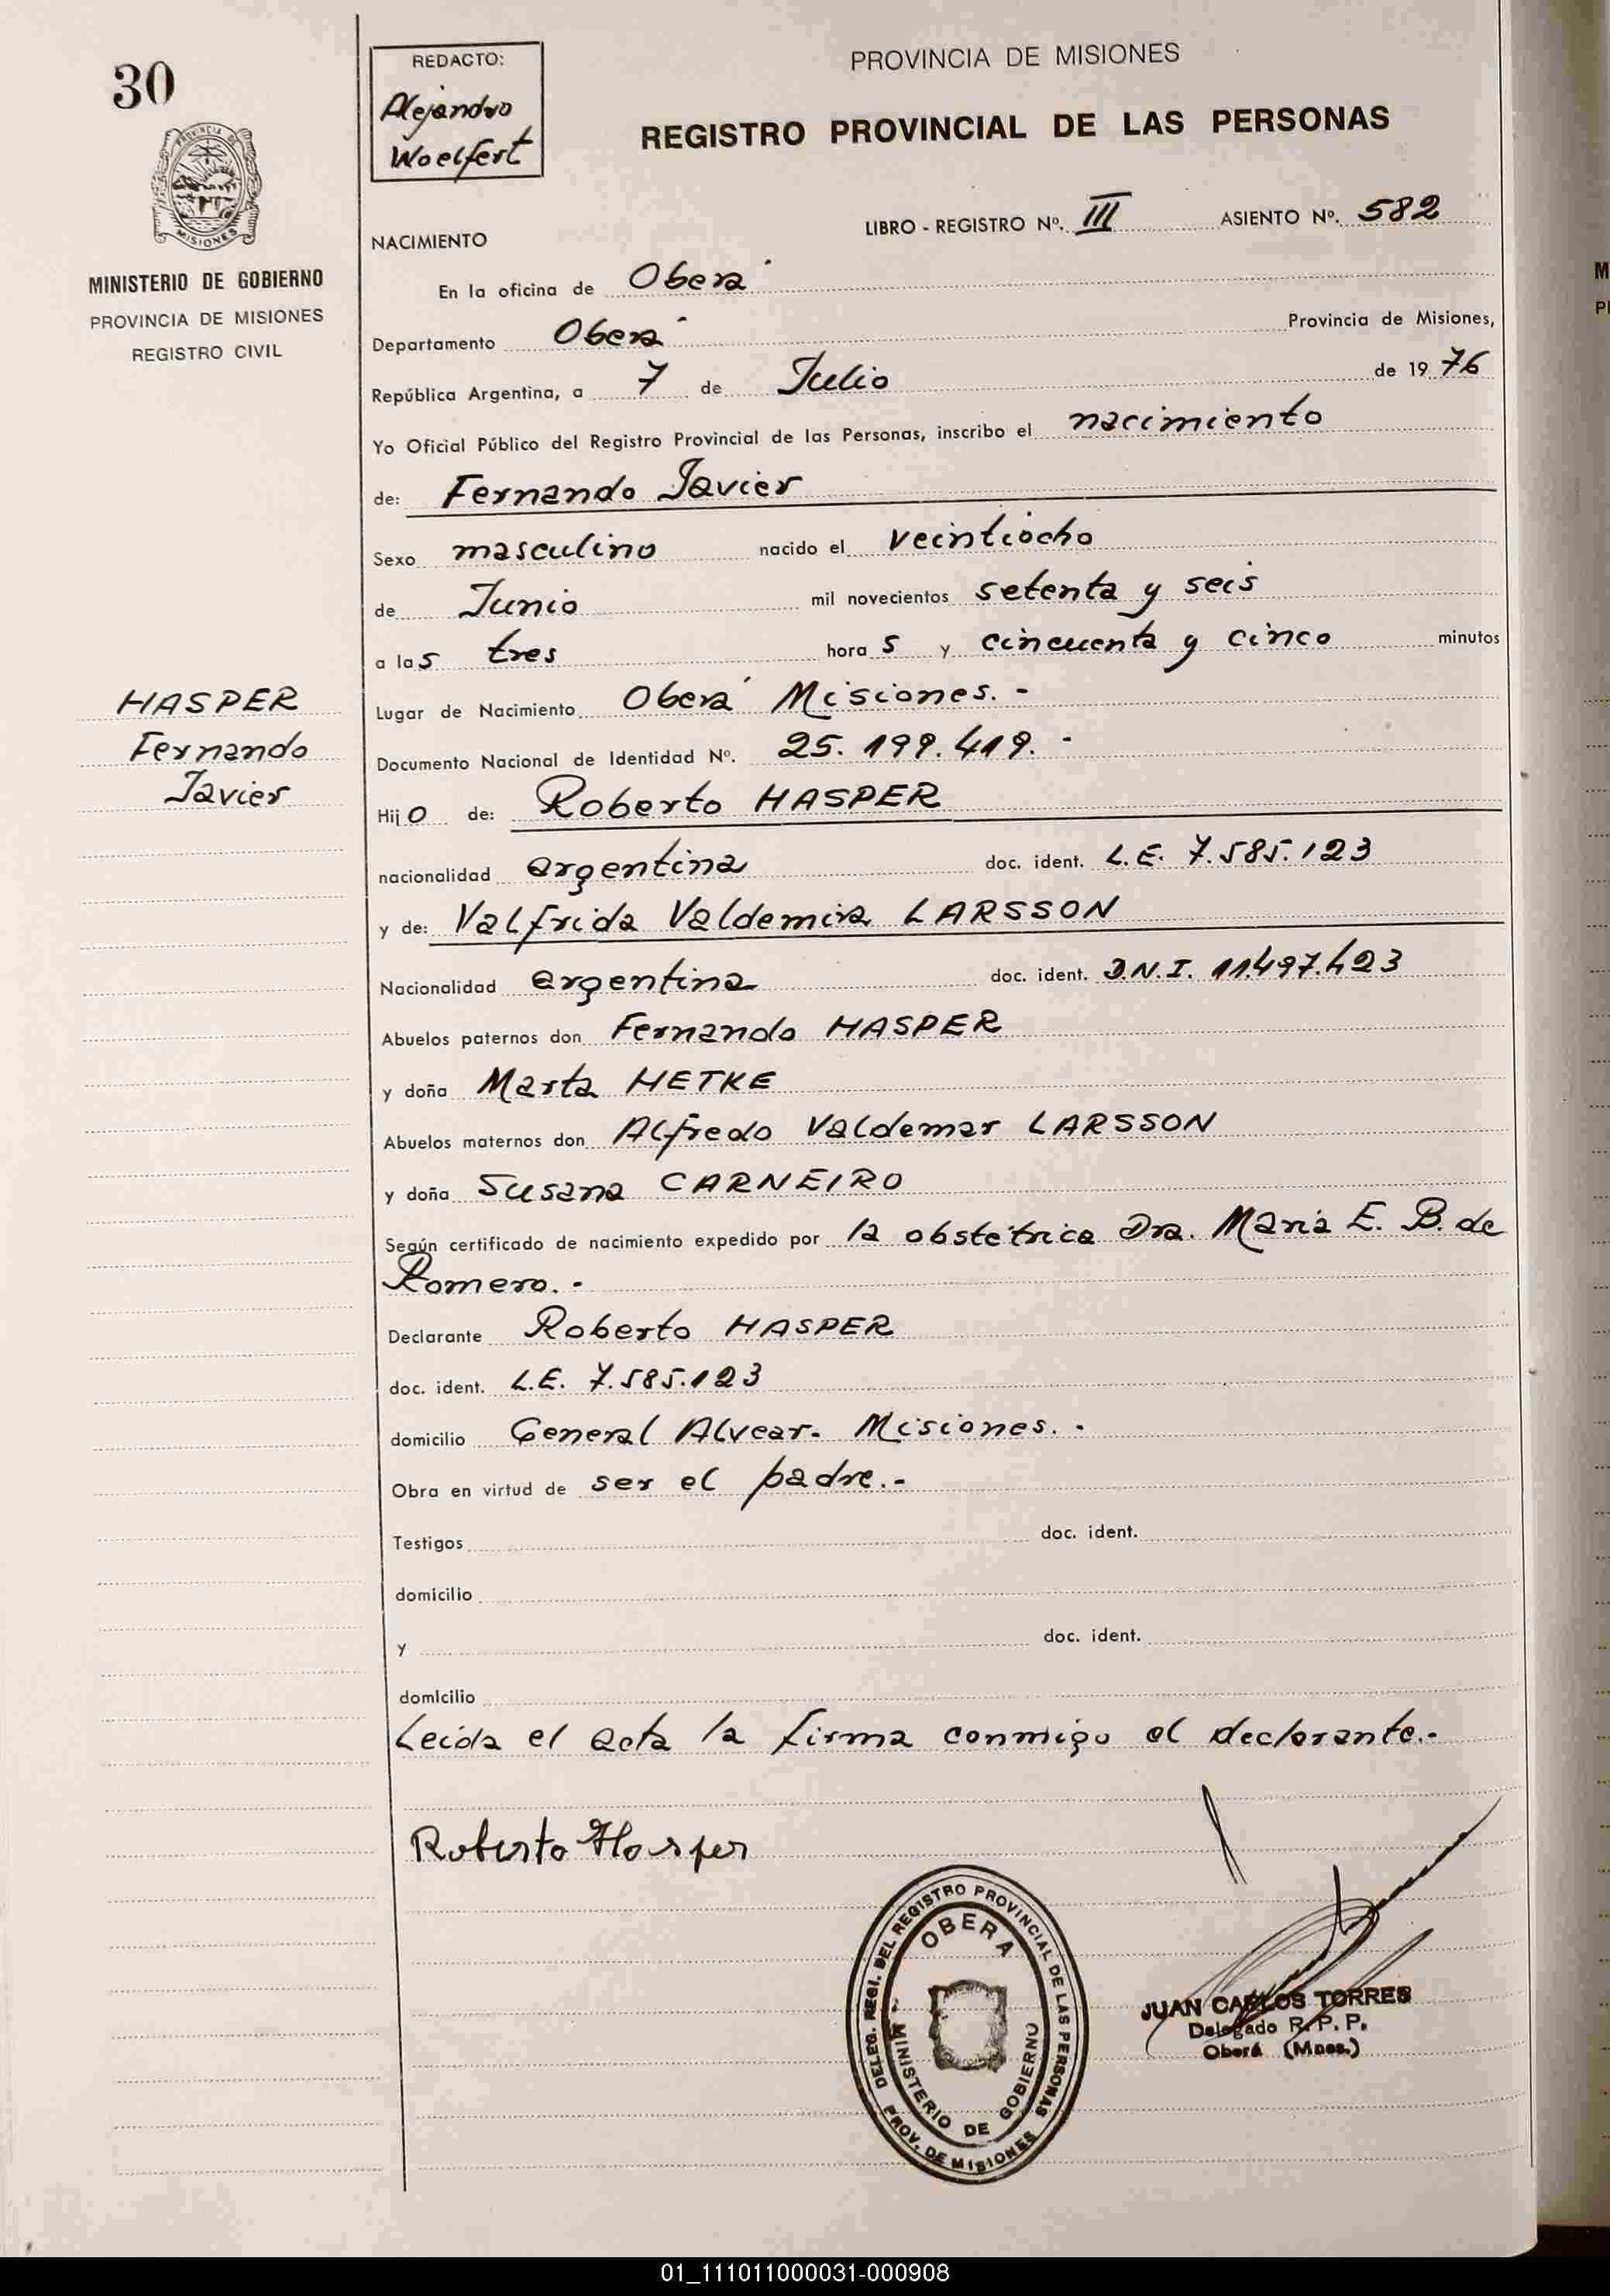 30
REDACTO:
Alejandro
Woelfert
PROVINCIA DE MISIONES
REGISTRO PROVINCIAL DE LAS PERSONAS
PROVINCIA DE
MISIONES
MINISTERIO DE GOBIERNO
PROVINCIA DE MISIONES
REGISTRO CIVIL
LIBRO - REGISTRO Nº. III ASIENTO Nº. 582
NACIMIENTO
En la oficina de Oberá
Departamento Oberá Provincia de Misiones,
República Argentina, a 7 de Julio de 19 76
Yo Oficial Público del Registro Provincial de las Personas, inscribo el nacimiento
de: Fernando Javier
Sexo masculino nacido el veintiocho
de Junio mil novecientos setenta y seis
a las tres hora s y cincuenta y cinco minutos
HASPER
Fernando
Javier
Lugar de Nacimiento Oberá Misiones. -
Documento Nacional de Identidad Nº. 25. 199. 419. -
Hijo de: Roberto HASPER
nacionalidad argentina doc. ident. L.E. 7.585.123
y de: Valfrida Valdemira LARSSON
Nacionalidad argentina doc. ident. D.N.I. 11.497.423
Abuelos paternos don Fernando HASPER
y doña Marta HETKE
Abuelos maternos don Alfredo Valdemar LARSSON
y doña Susana CARNEIRO
Según certificado de nacimiento expedido por la obstétrica Dra. María E. B. de
Romero. -
Declarante Roberto HASPER
doc. ident. L.E. 7.585.123
domicilio General Alvear. Misiones. -
Obra en virtud de ser el padre. -
Testigos doc. ident.
domicilio
y doc. ident.
domicilio
Leída el acta la firma conmigo el declarante. -
Roberto Hasper
DELEG. REGI. DEL REGISTRO PROVINCIAL DE LAS PERSONAS
OBERA
MINISTERIO DE GOBIERNO
PROV. DE MISIONES
JUAN CARLOS TORRES
Delegado R. P. P.
Oberá (Mnes.)
01_111011000031-000908